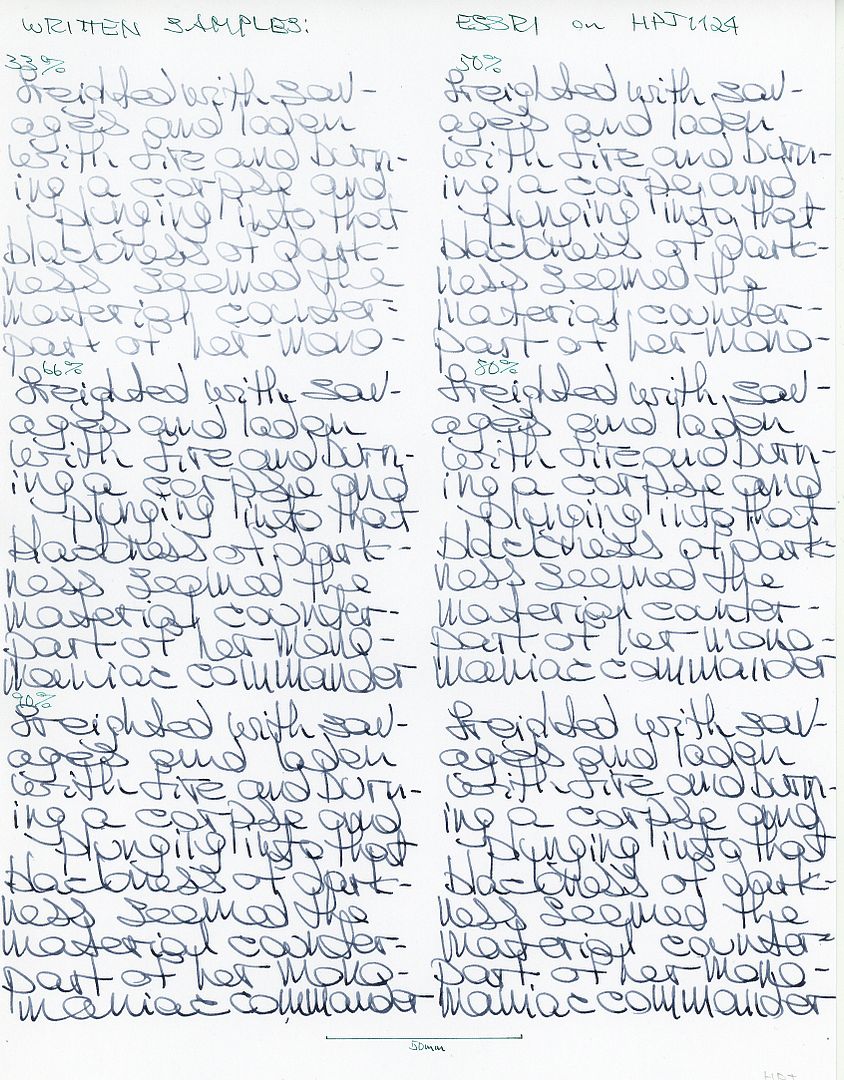 WRITTEN SAMPLES:
ESSRI on HPJ1124
33%
freighted with sav-
ages and laden
with fire and burn-
ing a corpse and
plunging into that
blackness of dark-
ness seemed the
material counter-
part of her mono-
50%
freighted with sav-
ages and laden
with fire and burn-
ing a corpse, and
plunging into that
blackness of dark-
ness seemed the
material counter-
part of her mono-
66%
freighted with sav-
ages and laden
with fire and burn-
ing a corpse and
plunging into that
blackness of dark-
ness seemed the
material counter-
part of her mono-
maniac commander
80%
freighted with sav-
ages and laden
with fire and burn-
ing a corpse and
plunging into that
blackness of dark-
ness seemed the
material counter-
part of her mono-
maniac commander
90%
freighted with sav-
ages and laden
with fire and burn-
ing a corpse and
plunging into that
blackness of dark-
ness seemed the
material counter-
part of her mono-
maniac commander
freighted with sav-
ages and laden
with fire and burn-
ing a corpse and
plunging into that
blackness of dark-
ness seemed the
material counter-
part of her mono-
maniac commander
50mm